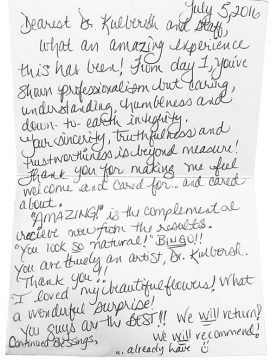 July 5, 2016
Dearest Dr. Kulbersh and Staff,
What an amazing experience
this has been! From day 1, you've
shown professionalism but caring,
understanding, humbleness and
down-to-earth integrity.
Your sincerity, truthfulness and
trustworthiness is beyond measure!
Thank you for making me feel
welcome and cared for... and cared
about.
"AMAZING!" is the complemental
recieve now from the results.
"You look so natural!" BINGO!!
You are truely an artist, Dr. Kulbersh.
Thank you!!
I loved my beautiful flowers! What
a wonderful surprise!
You guys are the BEST!! We will return!
We will recommend!
Continued Blessings, ... already have